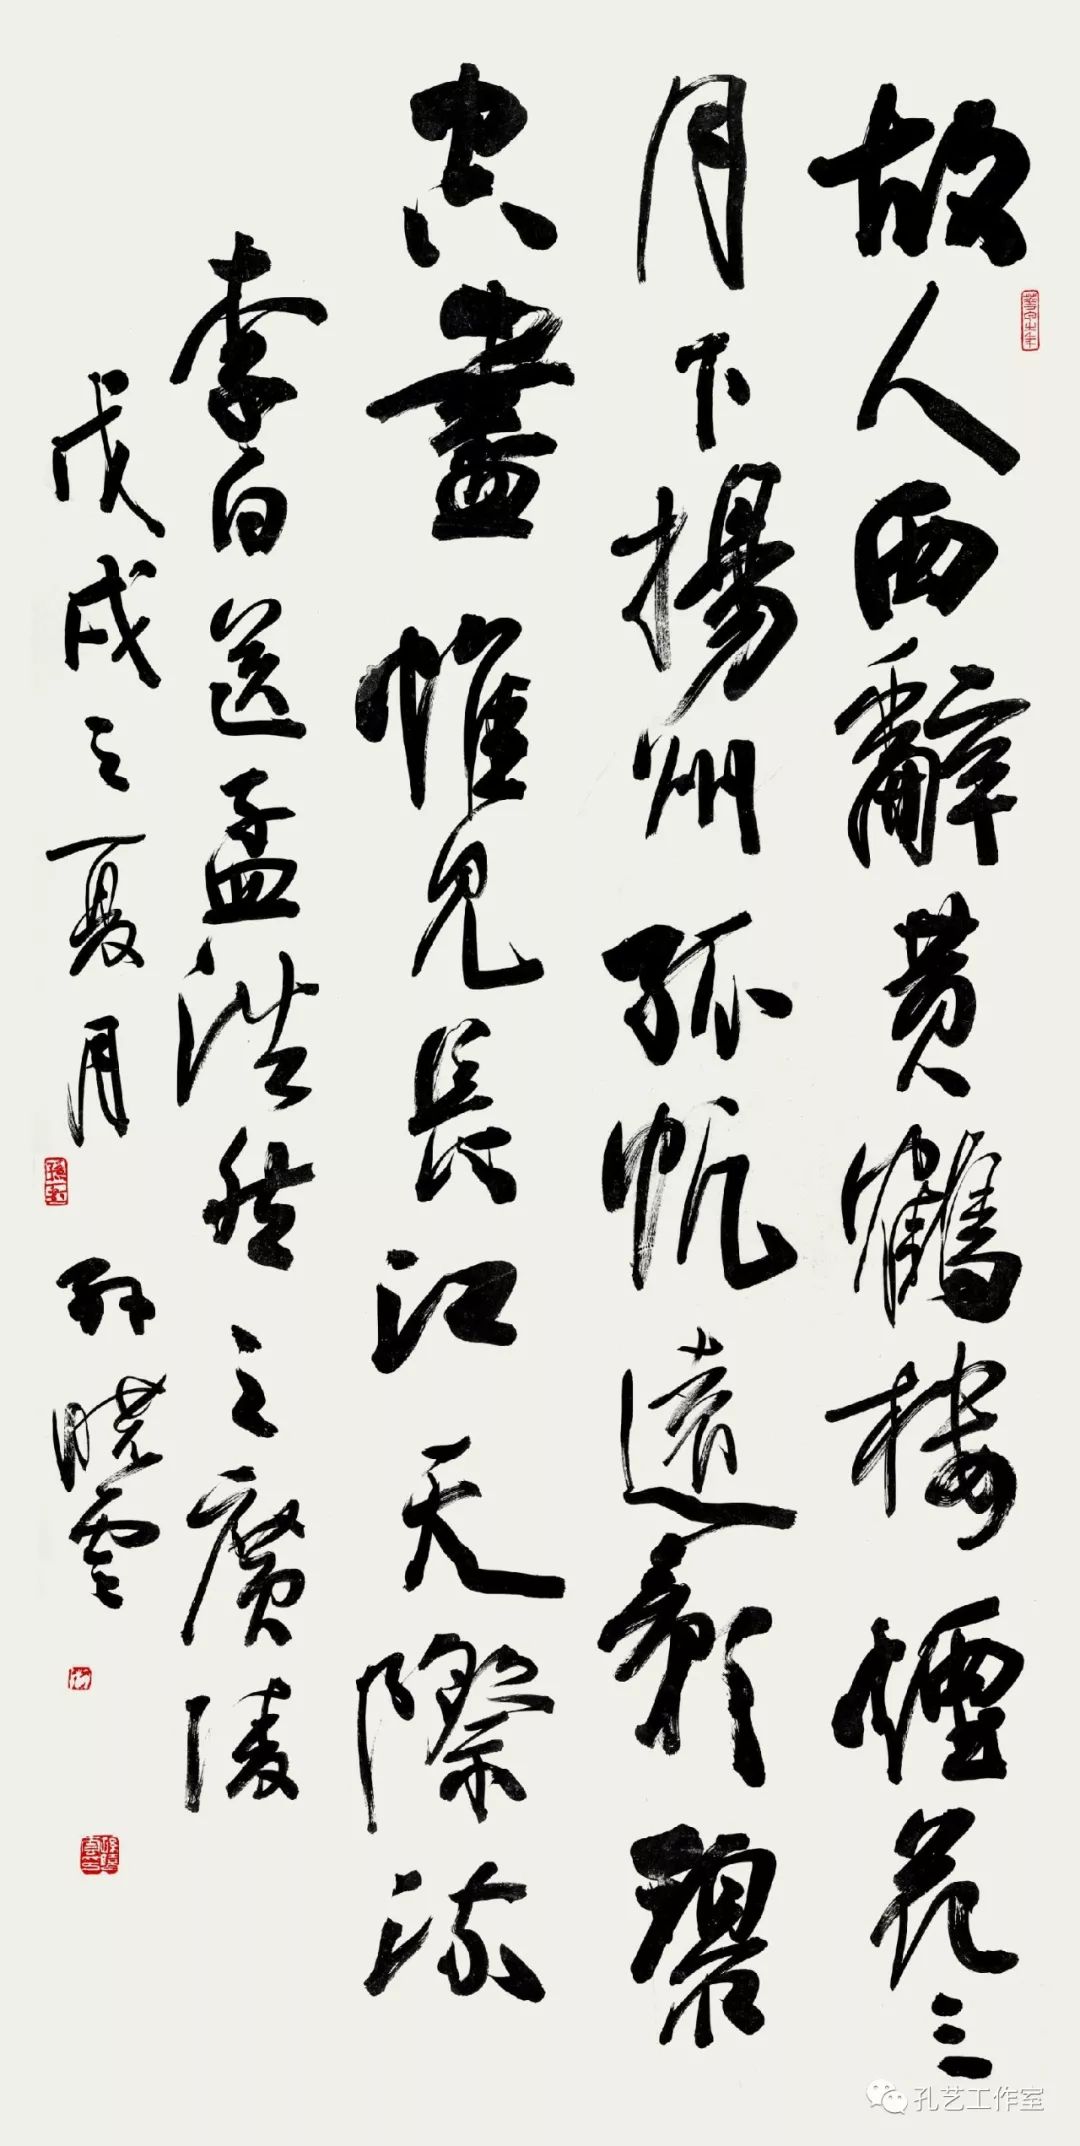 故人西辭黄鶴樓煙花三
月下揚州孤帆遠影碧
空盡惟見長江天際流
李白送孟浩然之廣陵
戊戌之夏月 孫曉雲
孔艺工作室